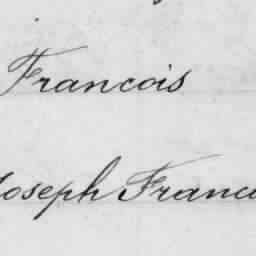 Francois
Joseph Franco